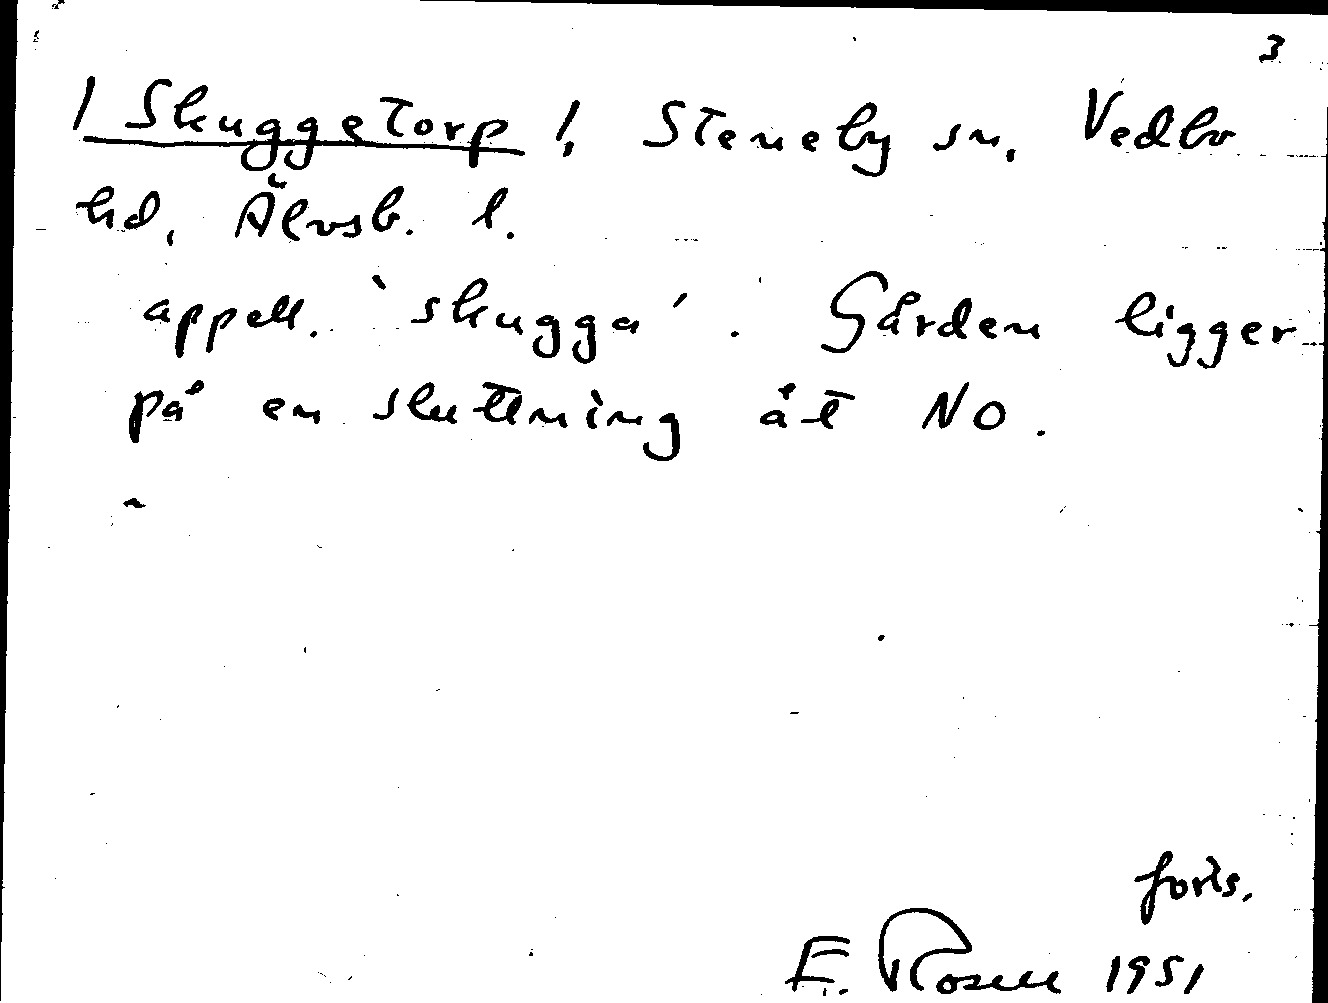 3
/ Skuggetorp /, Steneby sn, Vedbo
hd, Älvsb. l.
appell. ‵skugga′. Gården ligger
på en sluttning åt NO.
forts.
E. Rosell 1951